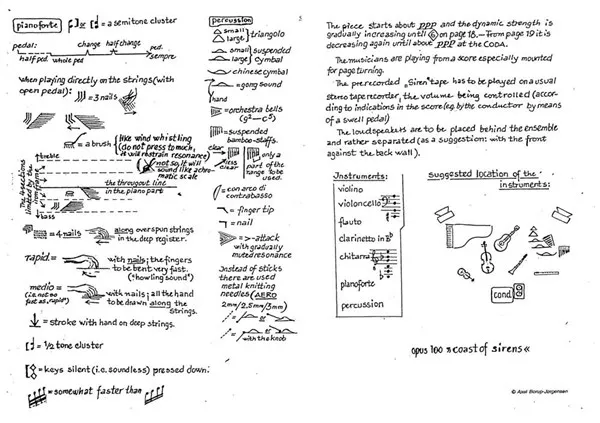 pianoforte
= a semitone cluster
pedal:
change
half change
half ped.
whole ped
ped.
sempre
when playing directly on the strings (with
open pedal):
= 3 nails
= a brush
like wind whistling
(do not press to much,
it will restrain resonance)
not so, it will
sound like a chro-
matic scale
The 4 sections
limited by the
iron frame
treble
the througout line
in the piano part
bass
= 4 nails
along overspun strings
in the deep register.
rapid. =
with nails; the fingers
to be bent very fast.
("howling sound")
medio =
(i.e. not so
fast as "rapid")
with nails; all the hand
to be drawn along the
strings.
= stroke with hand on deep strings.
= 1/2 tone cluster
= keys silent (i.e. soundless) pressed down.
= somewhat faster than
percussion
small
large
triangolo
small
large
suspended
cymbal
chinese cymbal
= gong sound
hand
= orchestra bells
(g²-c⁵)
= suspended
bamboo-staffs.
clear
less
clear
only a
part of the
range to be
used.
= con arco di
contrabasso
= finger tip
= nail
= >-attack
with gradually
muted resonance
Instead of sticks
there are used
metal knitting
needles (AERO
2mm/2,5mm/3mm)
or
or
with the knob
The piece starts about ppp and the dynamic strength is
gradually increasing until 6 on page 18. — From page 19 it is
decreasing again until about ppp at the CODA.
The musicians are playing from a score especially mounted
for page turning.
The prerecorded "Siren" tape has to be played on a usual
stereo tape recorder, the volume being controlled (accor-
ding to indications in the score (eg. by the conductor by means
of a swell pedal)
The loudspeakers are to be placed behind the ensemble
and rather separated (as a suggestion: with the front
against the back wall).
Instruments:
violino
violoncello
flauto
clarinetto in Bb
chitarra
pianoforte
percussion
Suggested location of the
instruments:
cond
opus 100 »coast of sirens«
© Axel Borup-Jørgensen